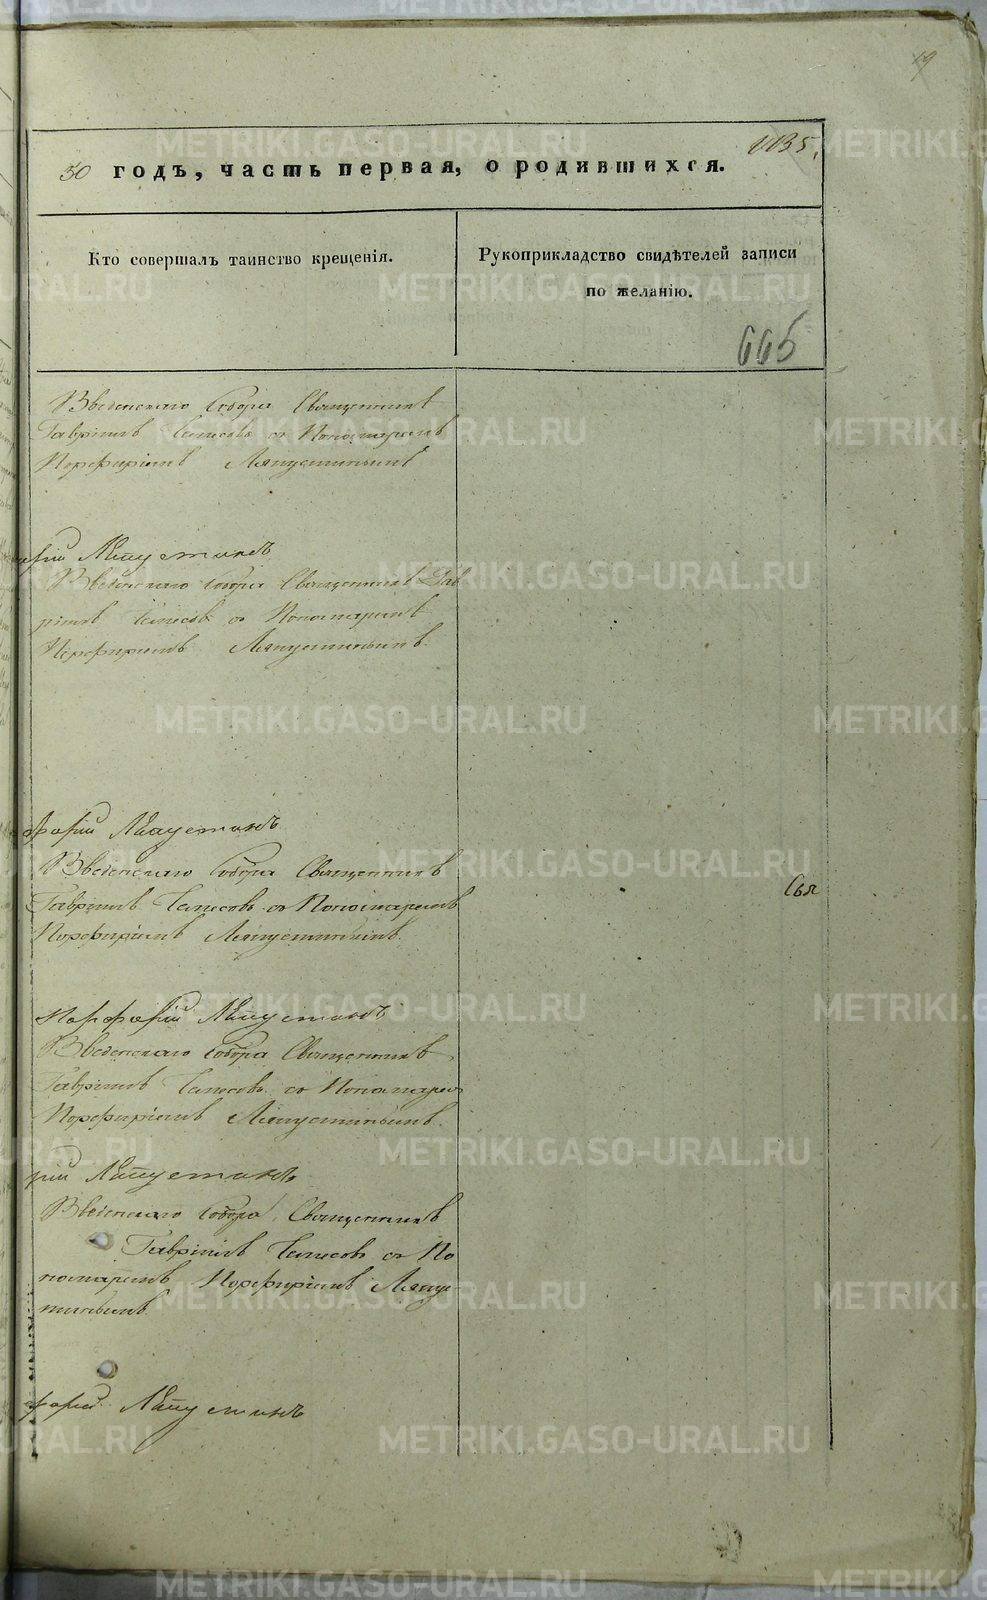 19
1135.
50 годъ, часть первая, о родившихся.
Кто совершалъ таинство крещенія.
Рукоприкладство свидѣтелей записи
по желанію.
665
Введенскаго Собора Священникъ
Гавріилъ съ Пономаремъ
Порфиріемъ Ляпустинымъ
Ляпустинъ
Введенскаго Собора Священникъ Гав
ріилъ съ Пономаремъ
Порфиріемъ Ляпустинымъ.
Ляпустинъ
Введенскаго Собора Священникъ
Гавріилъ съ Пономаремъ
Порфиріемъ Ляпустинымъ.
Порфирій Ляпустинъ
Введенскаго Собора Священникъ
Гавріилъ съ Пономаремъ
Порфиріемъ Ляпустинымъ.
рій Ляпустинъ
Введенскаго Собора Священникъ
Гавріилъ съ По
номаремъ Порфиріемъ Ляпус-
тинымъ.
Ляпустинъ
METRIKI.GASO-URAL.RU